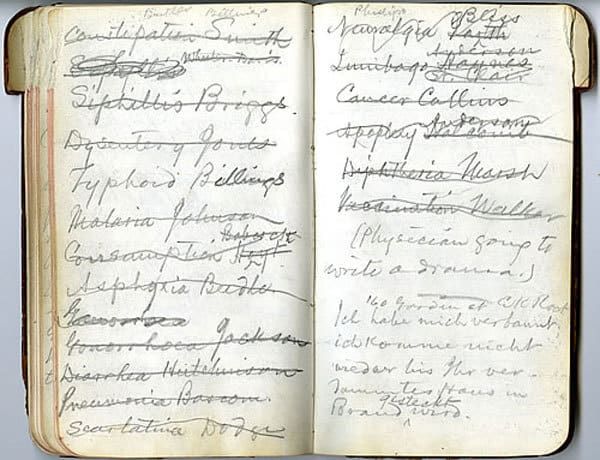 Butler Billings
Constipation Smith
Wheeler
Siphillis Briggs
Dysentery Jones
Typhoid Billings
Malaria Johnson
Babcock
Consumption Hoyt
Asphyxia Beedle
Gonorrhoea Jackson
Diarrhea Hutchinson
Pneumonia Bascom
Scarlatina Dodge
Phillips Bliss
Neuralgia
Anderson
Lumbago Haynes
St. Clair
Cancer Collins
Anderson
Apoplexy Holcomb
Diphtheria Marsh
Vaccination Walker
(Physician going to
write a drama.)
'60 Garden at
Ich habe mich verbannt.
ich komme nicht
weder bis Ihr ver-
Haus in
gesteckt
Brand wird.